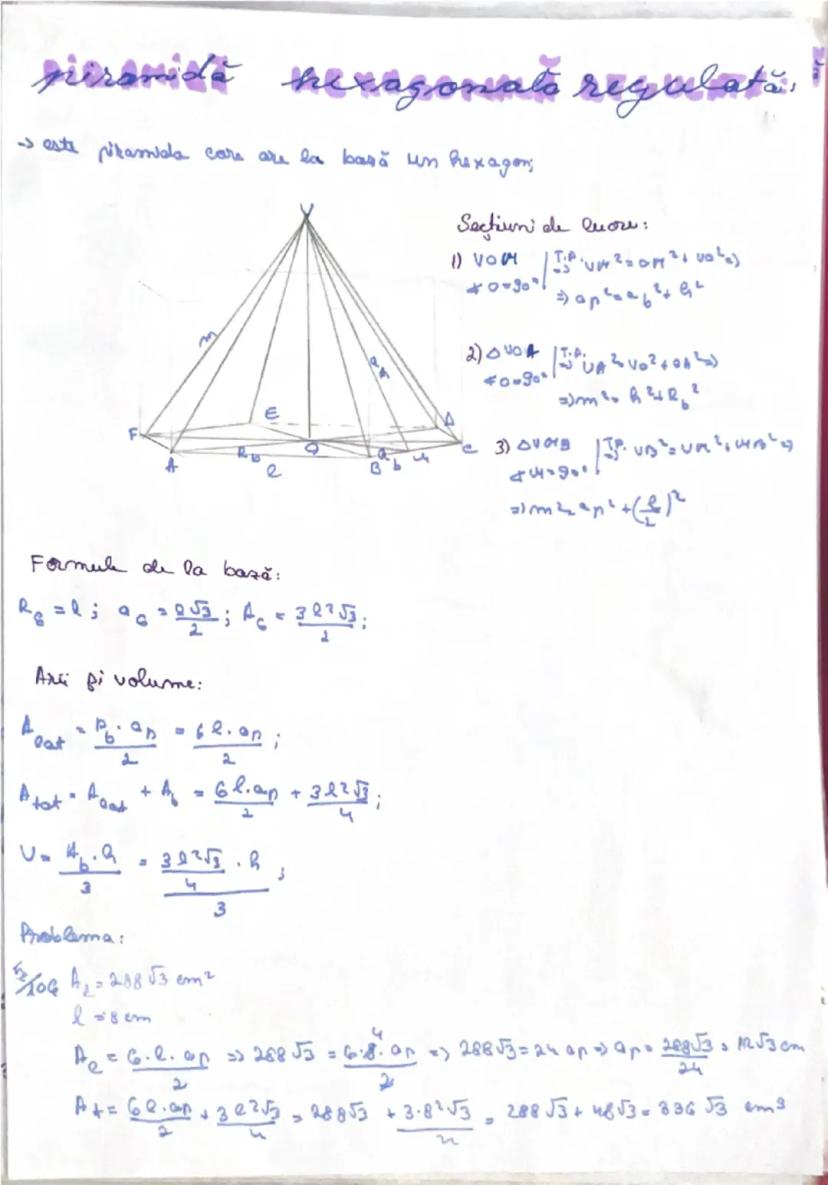 piramidă hexagonală regulată:
→ este piramida care are la bază un hexagon;
V
m
ap
F
E
D
A
Rb
O
B
ab
M
C
l
Secțiuni de lucru:
1) VOM | T.P. ⇒ VM² = OM² + VO² ⇒
∢O=90° ⇒ ap² = ab² + h²
2) △VOA | T.P. ⇒ VA² = VO² + OA² ⇒
∢O=90° ⇒ m² = h² + Rb²
3) △VMB | T.P. ⇒ VB² = VM² + MB² ⇒
∢M=90°
⇒ m² = ap² + (l/2)²
Formule de la bază:
R₆ = l; a₆ = l√3/2; A₆ = 3l²√3/2;
Arii și volume:
Alat = Pb·ap/2 = 6l·ap/2;
Atot = Alat + Ab = 6l·ap/2 + 3l²√3/4;
V = Ab·h/3 = 3l²√3/4·h/3;
Problema:
106 Al = 288√3 cm²
l = 8 cm
Al = 6·l·ap/2 ⇒ 288√3 = 6·8·ap/2 ⇒ 288√3 = 24 ap ⇒ ap = 288√3/24 = 12√3 cm
At = 6l·ap/2 + 3l²√3/4 = 288√3 + 3·8²√3/4 = 288√3 + 48√3 = 336√3 cm³